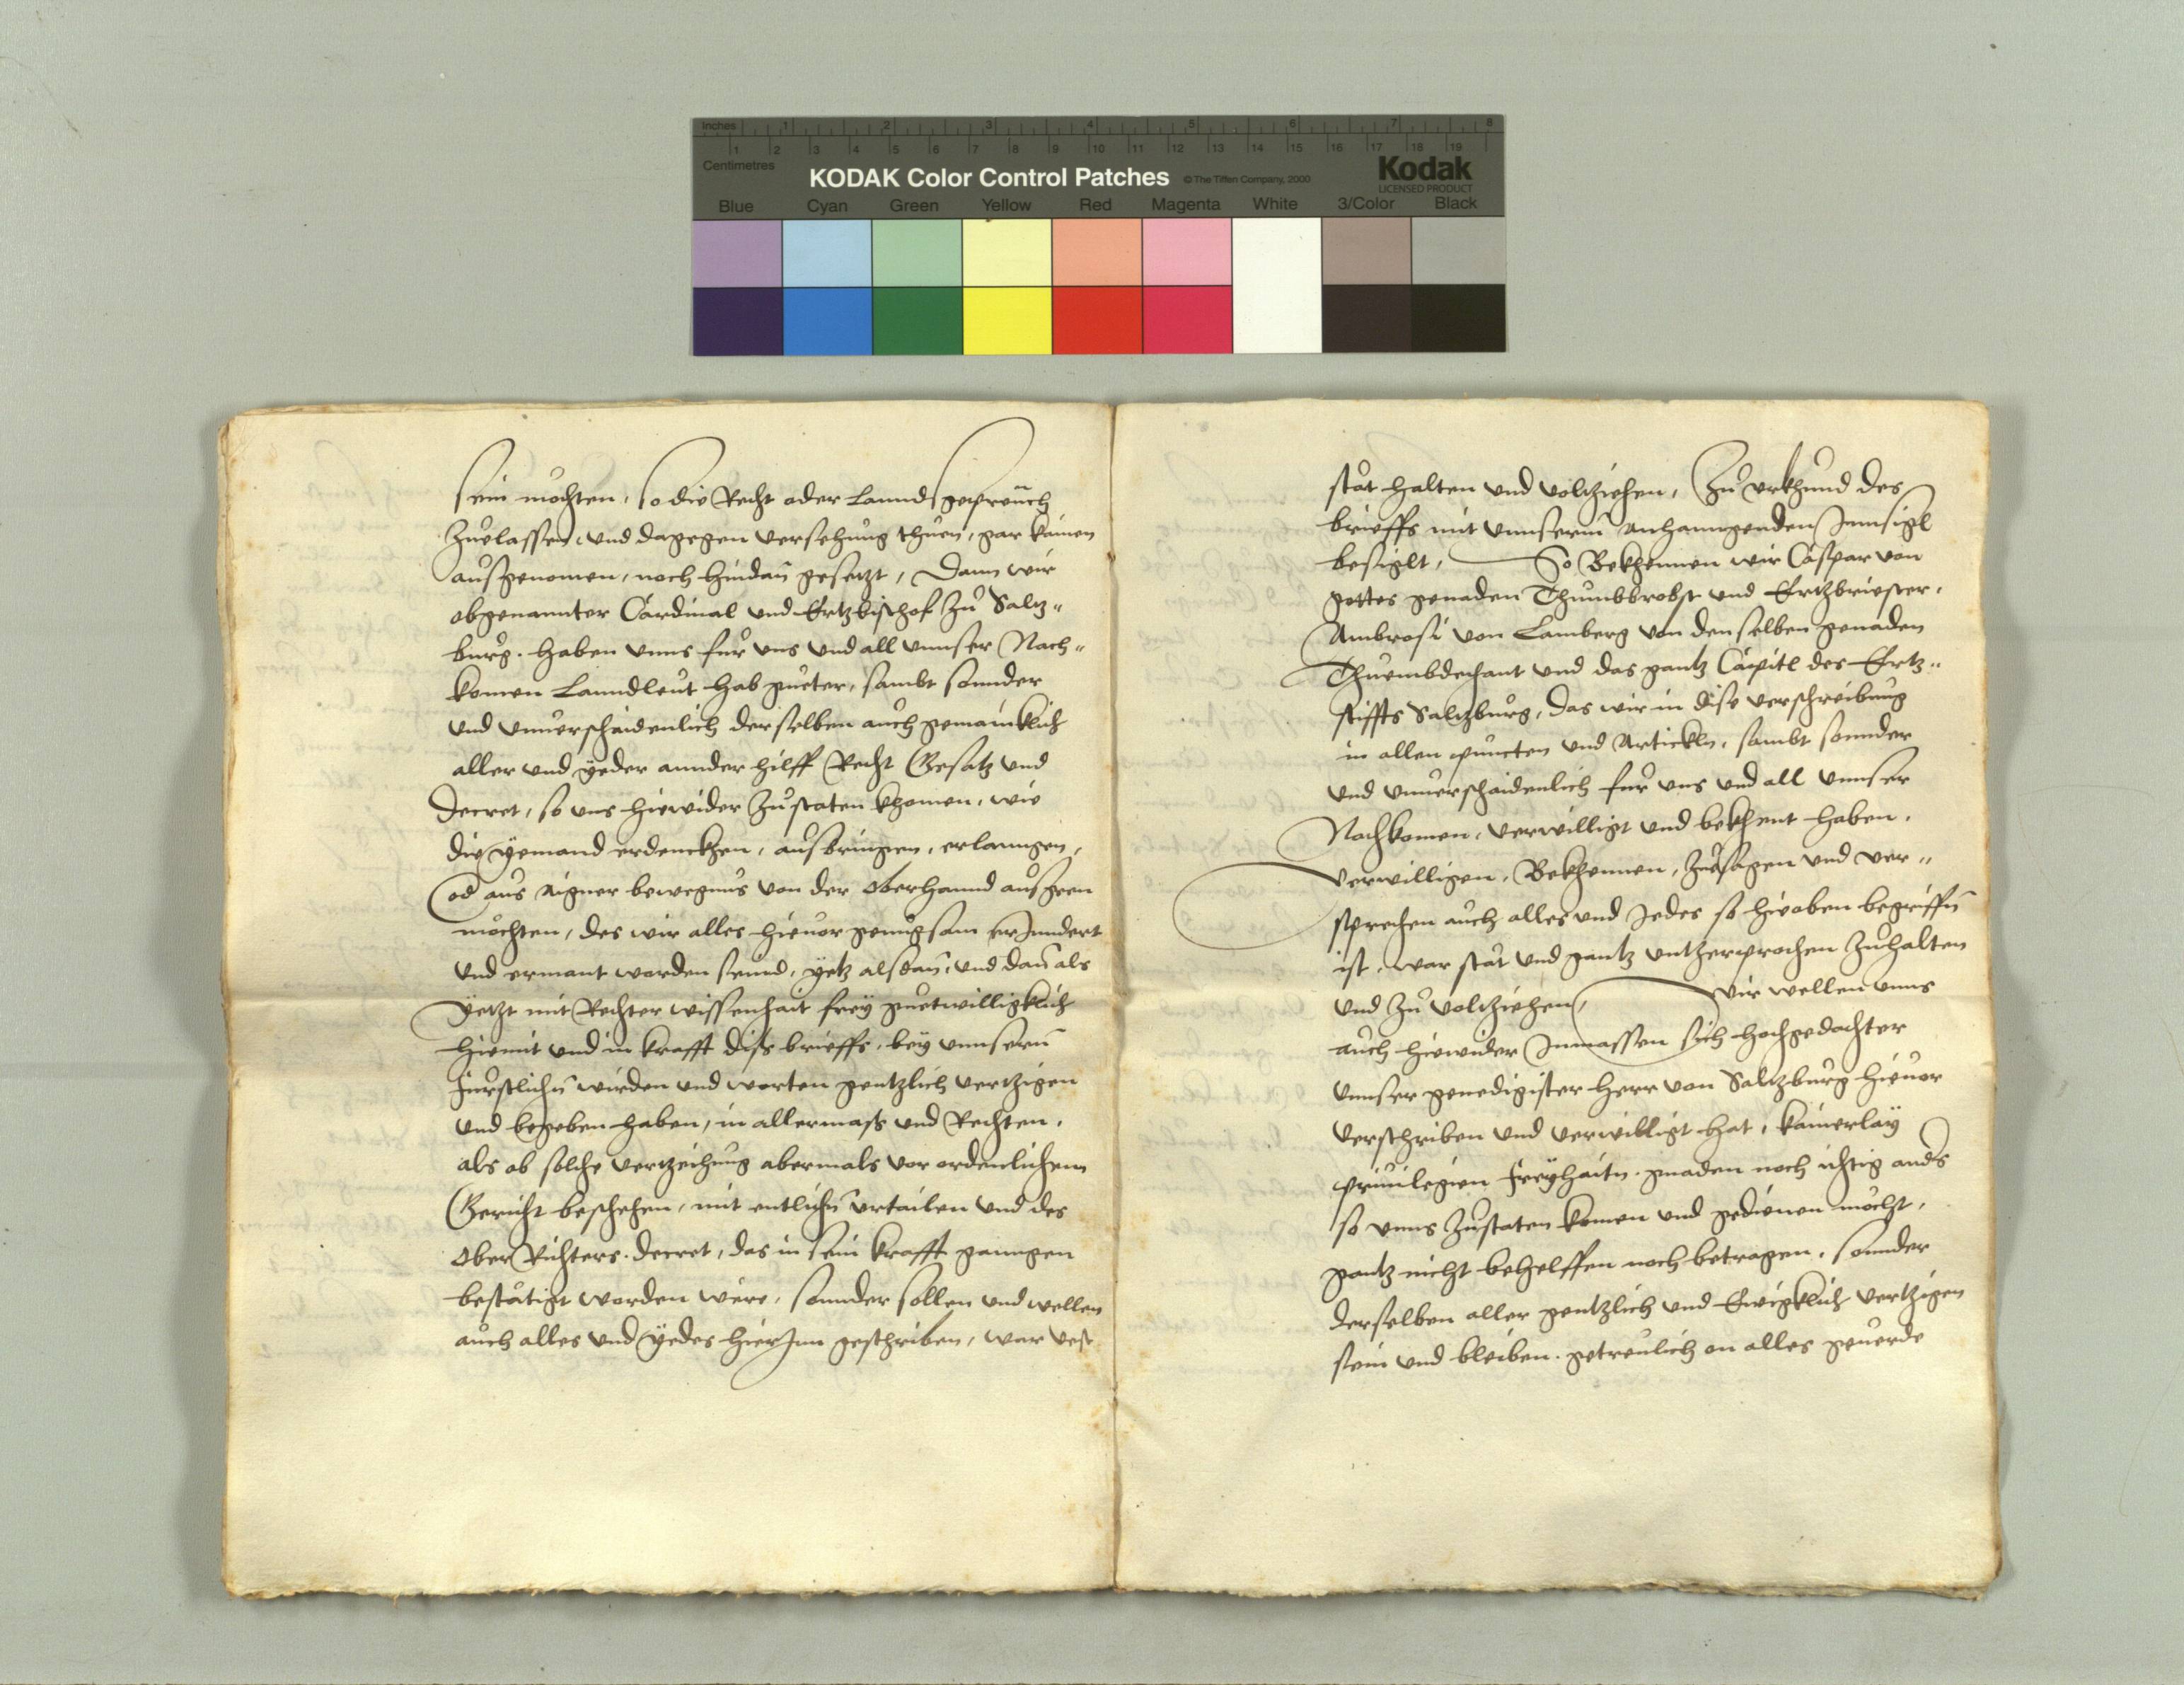 Inches 1 2 3 4 5 6 7 8
1 2 3 4 5 6 7 8 9 10 11 12 13 14 15 16 17 18 19
Centimetres
KODAK Color Control Patches © The Tiffen Company, 2000 Kodak
LICENSED PRODUCT
Blue Cyan Green Yellow Red Magenta White 3/Color Black
sein möchten, so die Recht oder Lanndsgepreüch
Zuelassen, und dagegen versehung thuen, gar kainen
ausgenomen, noch hindan gesetzt, Dann wir
obgenannter Cardinal und Ertzbischof zu Saltz„
burg. haben unns für uns und all unnser Nach„
komen Lanndleut hab gueter, sambt sonnder
und unuerschaidenlich derselben auch gemaincklich
aller und yeder annder hilff Recht Gesatz und
decret, so uns hiewider Zustaten khomen, wie
die yemand erdenckhen, ausbringen, erlanngen,
od aus aigner bewegnus von der Oberhannd ausgeen
möchten, des wir alles hieuor genugsam erJnndert
und ermant worden seind, yetz alsdan, und dan als
yetzt mit Rechter wissenhait frey guetwilligklich
hiemit und in krafft diss brieffs, bey unnsern
fürstlichn wirden und worten gentzlich vertzigen
und begeben haben, in allermass und Rechten,
als ob solche vertzeihung abermals vor ordenlichem
Gericht beschehen, mit entlichn urtailen und des
Ober Richters. decret, das in sein krafft ganngen
bestätigt worden were, sonnder sollen und wellen
auch alles und yedes hierJnn geschriben, war vest
stät halten und volziehen, Zu urkhund des
brieffs mit unnserm anhanngenden Jnnsigl
besiglt, So Bekhennen wir Caspar von
gottes genaden Thumbbrobst und Ertzbriester,
Ambrosi von Lamberg von denselben genaden
Thuembdechant und das gantz Capitl des Ertz„
stiffts Saltzburg, das wir in dise verschreibung
in allen puncten und Artickln, sambt sonnder
und unuerschaidenlich für uns und all unnser
Nachkomen, verwilligt und bekhent haben,
verwilligen, Bekhennen, zuesagen und ver„
sprechen auch alles und Jedes so hieoben begriffn
ist, war stät und gantz untzerprochen zuhalten
und zu volziehen, wir wellen unns
auch hiewider Jnmassen sich hochgedachter
unnser genedigister herr von Saltzburg hieuor
verschriben und verwilligt hat, kainerlay
priuilegien freyhaitn. gnaden noch ichtig anders
so unns Zustaten komen und gedienen möcht,
gantz nicht behelffen noch betragen, sonnder
derselben aller gentzlich und Ewigklich vertzigen
sein und bleiben. getreulich on alles geuerde